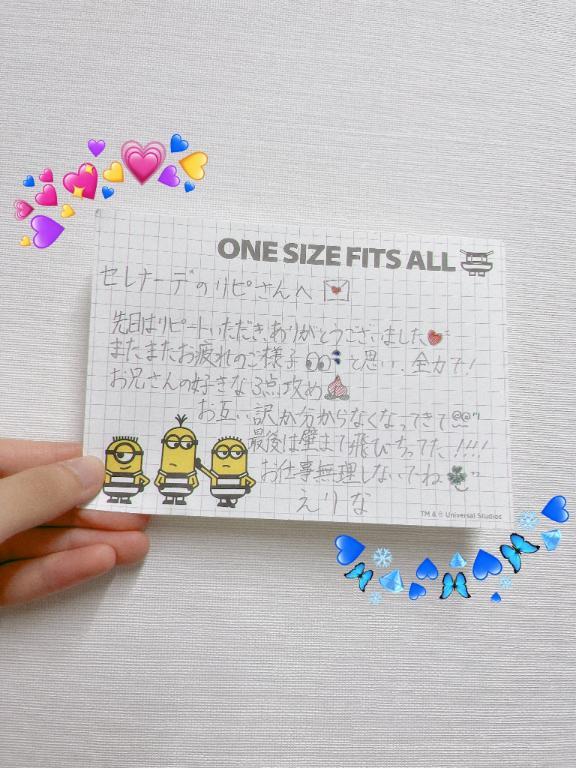 ONE SIZE FITS ALL
セレナーデのリピさんへ
先日はリピートいただき、ありがとうございました
またまたお疲れのご様子と思い、全力で!
お兄さんの好きな3点攻め
お互い訳が分からなくなってきて@@"
最後は壁まで飛びちってた!!!!
お仕事無理しないでね
えりな
TM & © Universal Studios